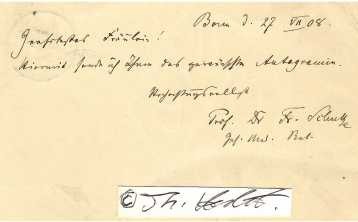 Bonn d. 27 VII 08.
Geehrtestes Fräulein!
Hiermit sende ich Ihnen das gewünschte Autogramm.
Hochachtungsvollst
Prof. Dr Fr. Schultze
Geh. Med. Rat.
©